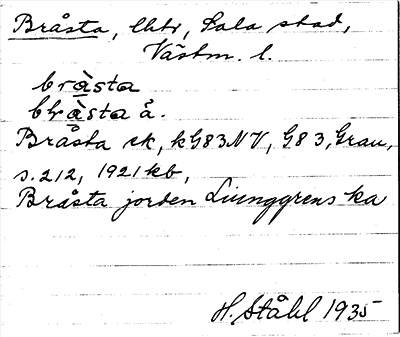 Bråsta, lhtr, Sala stad,
Västm. l.
bråsta
bråsta å.
Bråsta ek, kG83NV, G83, Grau,
s.212, 1921 kb,
Bråsta jorden Liunggrens ka
H. Ståhl 1935